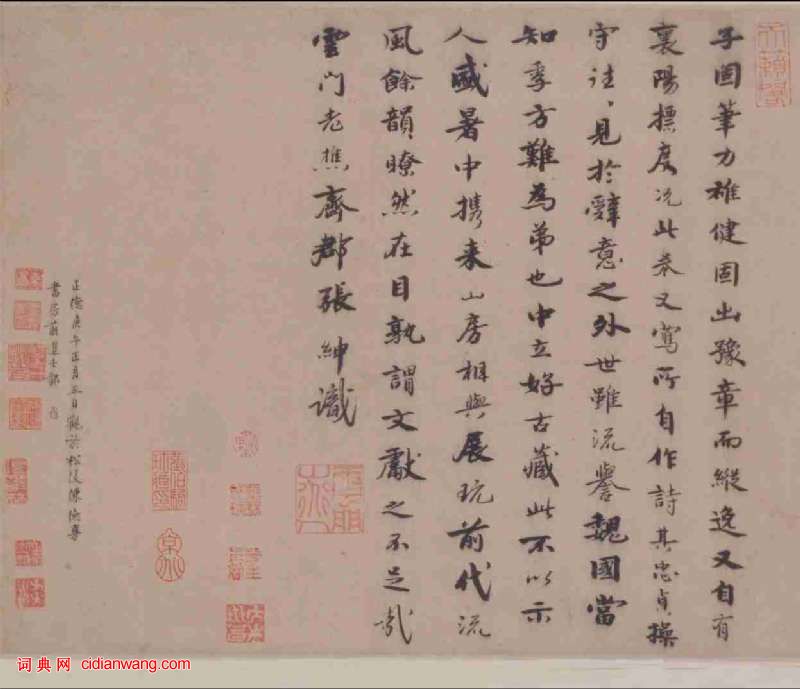 子固筆力雅健固出豫章而縱逸又自有
襄陽標度况此卷又寫所自作詩其忠貞操
守往往見於辭意之外世雖流譽魏國當
知季方難為弟也中立好古藏此不以示
人盛暑中携来山房相與展玩前代流
風餘韻瞭然在目孰謂文獻之不足哉
雲門老樵齊郡張紳識
正德庚午正月五日觀於松陵陳
詞典网 cidianwang.com